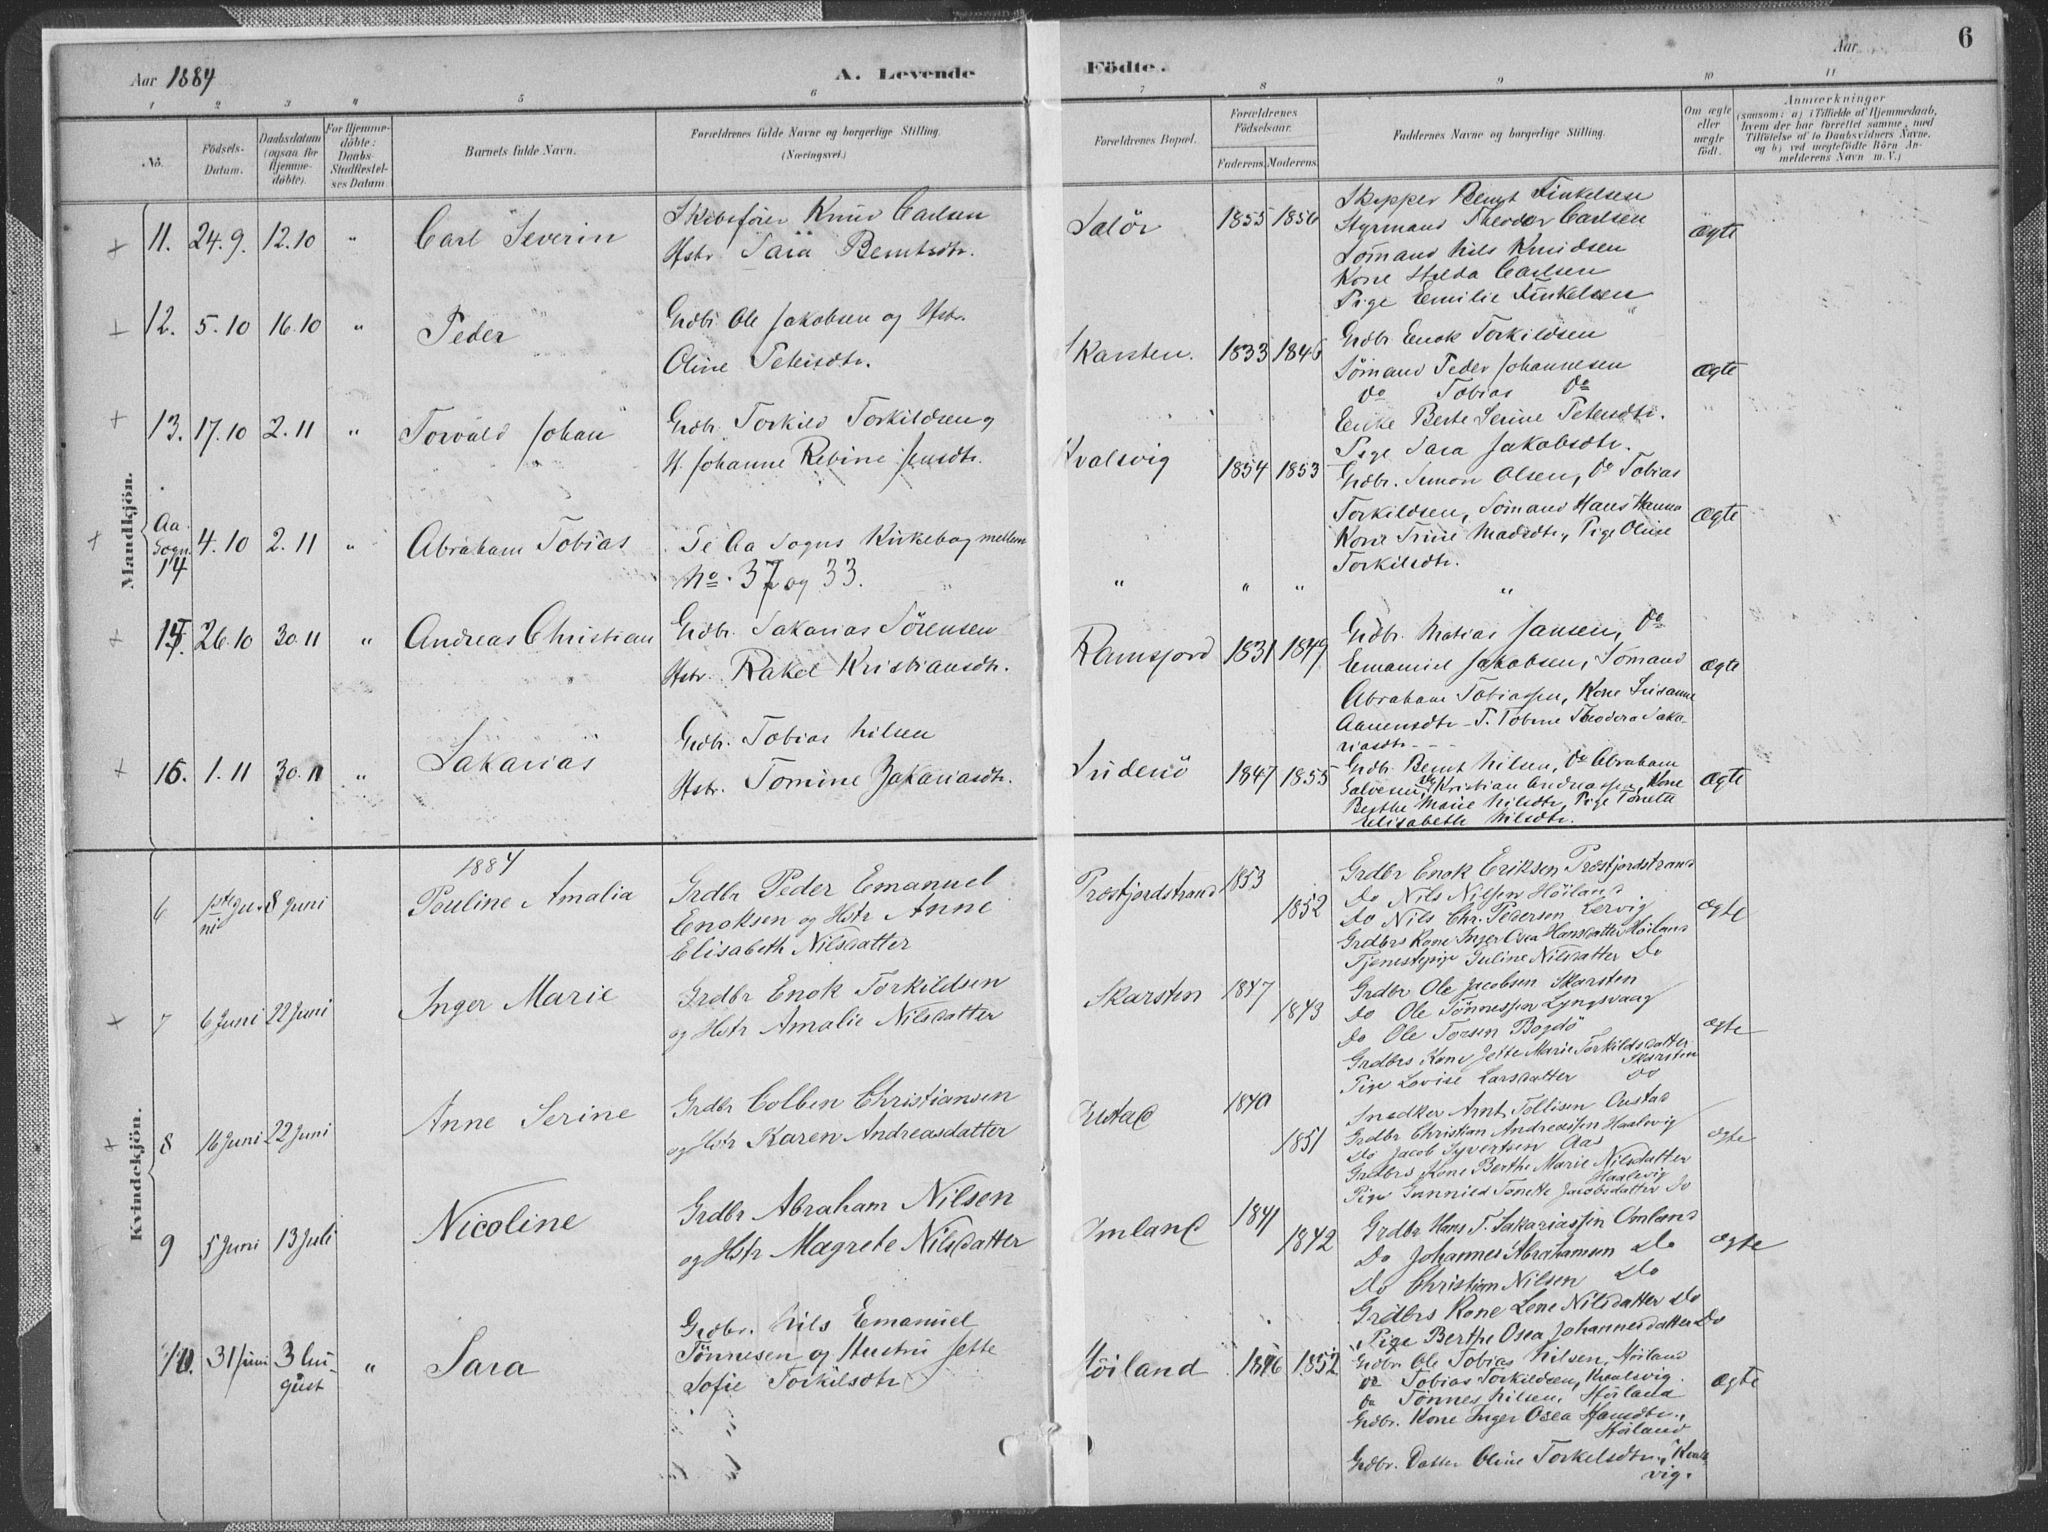 Aar 1884
A. Levende
Födte.
Aar
6
1 2 3 4 5 6 7 8 9 10 11
No.
Födsels-
Datum.
Daabsdatum
(ogsaa for
Hjemme-
döbte).
For Hjemme-
döbte:
Daabs-
Stadfæstel-
ses Datum.
Barnets fulde Navn.
Forældrenes fulde Navne og borgerlige Stilling.
(Næringsvei.)
Forældrenes Bopæl.
Forældrenes
Födselsaar.
Faderens. Moderens.
Faddernes Navne og borgerlige Stilling.
Om ægte
eller
uægte
född.
Anmærkninger
(saasom: a) i Tilfælde af Hjemmedaab,
hvem der har forrettet samme, med
Tilföielse af to Daabsvidners Navne.
og b) ved uægtefödte Börn An-
melderens Navn m. V.)
Mandkjön.
11. 24.9. 12.10 " Carl Severin
Skibsfører Knud Carlsen
Hstr. Sara Berntsdtr.
Salör 1855 1856
Skipper Bernt Finkelsen
Styrmand Theodor Carlsen
Sömand Nils Knudsen
Kone Hilda Carlsen
Pige Emilie Finkelsen
Ægte
12. 5.10 16.10 " Peder
Grdbr. Ole Jakobsen og Hstr.
Oline Petersdtr.
Skarsten. 1833 1846
Grdbr Enok Torkildsen
Sömand Peder Johannesen
do Tobias do
Enke Berte Serine Petersdtr.
Pige Sara Jakobsdtr.
Ægte
13. 17.10 2.11 " Torvald Johan
Grdbr. Torkild Torkildsen og
H. Johanne Rebine Jensdtr.
Kvalsvig 1854 1853
Grdbr. Simon Olsen, do Tobias
Torkildsen, Sömand Hans Hansen
Kone Trine Madsdtr, Pige Oline
Torkilsdtr.
Ægte
Aa
Sogn
14 4.10 2.11 " Abraham Tobias
Se Aa Sogns Kirkebog mellem
No. 37 og 33.
" " " "
15. 26.10 30.11 " Andreas Christian
Grdbr. Sakarias Sörensen
Hstr. Rakel Kristiansdtr.
Ramsfjord 1831 1849
Grdbr. Matias Jansen, do
Emanuel Jakobsen, Sömand
Abraham Tobiassen, Kone Susanne
Aanensdtr – P. Tobine Theodora Saka-
riasdtr. – –
Ægte
16. 1.11 30.11 " Sakarias
Grdbr. Tobias Nilsen
Hstr. Tomine Zakariasdtr.
Suderö 1847 1855
Grdbr. Bernt Nilsen, do Abraham
Salvesen, do Kristian Andreassen, Kone
Berthe Marie Nilsdtr, Pige Tonette
Elisabeth Nilsdtr.
Ægte
Kvindekjön.
1884
6 1ste Ju-
ni 8 Juni Pouline Amalia
Grdbr Peder Emanuel
Enoksen og Hstr Anne
Elisabeth Nilsdatter
Præstfjordstrand 1853 1852
Grdbr Enok Eriksen Præstfjordstrand
Do Nils Nilsen Höiland
Do Nils Chr. Pedersen Lervig
Grdbrs Kone Inger Osea Hansdatter Höiland
Tjenestepige Juline Nilsdatter Do
Ægte
7 6 Juni 22 Juni Inger Marie
Grdbr Enok Torkildsen
og Hstr Amalie Nilsdatter
Skarsten 1847 1843
Grdbr Ole Jacobsen Skarsten
Do Ole Tönnessen Lyngsvaag
Do Ole Torsen Bogdö
Grdbrs Kone Jette Marie Torkildsdatter
Skarsten
Pige Lovise Larsdatter Do
Ægte
8 16 Juni 22 Juni Anne Serine
Grdbr Colben Christiansen
og Hstr Karen Andreasdatter
1840 1851
Snedker Arnt Tollisen Oustad
Grdbr Christian Andreassen Haalevig
Do Jacob Syvertsen Aas
Grdbrs Kone Berthe Marie Nilsdatter
Haalevig
Pige Gunnild Tonette Jacobsdatter Do
Ægte
9 5 Juni 13 Juli Nicoline
Grdbr Abraham Nilsen
og Hstr Magrete Nilsdatter
Omland 1841 1842
Grdbr Hans T. Sakariassen Omland
Do Johannes Abrahamsen Do
Do Christian Nilsen Do
Grdbrs Kone Lene Nilsdatter Do
Pige Berthe Osea Johannesdatter Do
Ægte
10. 31 Juni 3 Au-
gust " Sara
Grdbr. Nils Emanuel
Tönnesen og Hustru Jette
Sofie Torkilsdtr
Höiland 1846 1852
Grdbr. Ole Tobias Nilsen, Höiland
do Tobias Torkildsen, Kvalsvig.
do Tönnes Nilsen, Höiland
Grdbr. Kone Inger Osea Hansdtr.,
Höiland
Grdbr. Datter Oline Torkelsdtr., Kvals-
vig.
Ægte